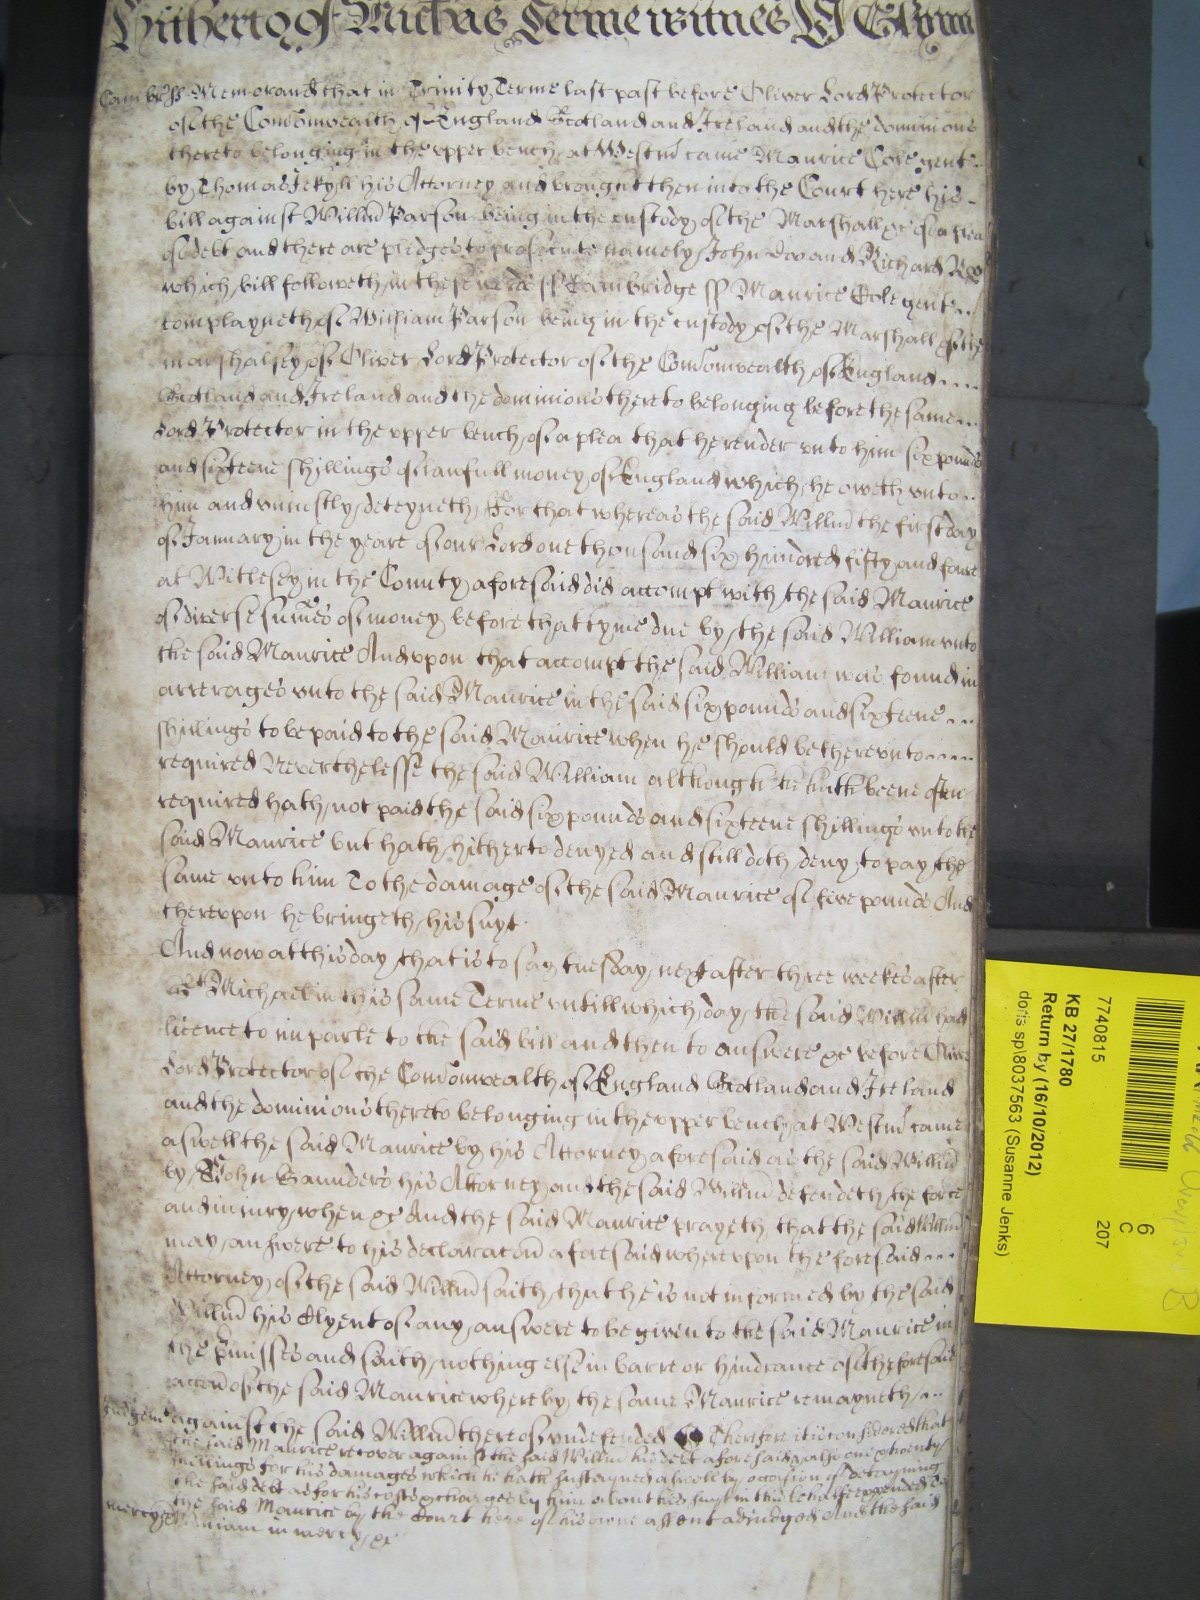 Hitherto of Mich'as Terme witnes
Cambr ss Memorand that in Trinity Terme last past before Oliver Lord Protector
of the Com̄onwealth of England Scotland and Ireland and the dominions
thereto belonging in the upper bench at Westm̄ came Maurice Cole gent
by Thomas Jekyll his Attorney and brought then into the Court here his
bill against Willm̄ Parson being in the custody of the Marshall &c of a plea
of debt and there are pledges to prosecute namely John Doo and Richard Roo
which bill followeth in these words ss Cambridge ss Maurice Cole gent
complayneth of William Parson being in the custody of the Marshall of the
marshalsey of Oliver Lord Protector of the Com̄onwealth of England
Scotland and Ireland and the dominions thereto belonging before the same
Lord Protector in the upper bench of a plea that he render unto him six pounds
and sixteene shillings of lawfull money of England which he oweth unto
him and uniustly deteyneth For that whereas the said Willm̄ the first day
of January in the yeare of our Lord one thousand six hundred fifty and foure
at Witlesey in the County aforesaid did accompt with the said Maurice
of diverse sum̄es of money before that tyme due by the said William unto
the said Maurice And upon that accompt the said William was found in
arrerages unto the said Maurice in the said six pounds and sixteene
shillings to be paid to the said Maurice when he should be thereunto
required Neverthelesse the said William although he hath beene often
required hath not paid the said six pounds and sixteene shillings unto the
said Maurice but hath hitherto denyed and still doth deny to pay the
same unto him To the damage of the said Maurice of five pounds And
thereupon he bringeth his suyt
And now at this day that is to say tuesday next after three weekes after
St Michael in this same Terme untill which day the said Willm̄ had
licence to imparle to the said bill and then to answere &c before Oliver
Lord Protector of the Com̄onwealth of England Scotland and Ireland
and the dominions thereto belonging in the upper bench at Westm̄ came
aswell the said Maurice by his Attorney aforesaid as the said Willm̄
by John Saunders his Attorney and the said Willm̄ defendeth the force
and iniury when &c And the said Maurice prayeth that the said Willm̄
may answere to his declarac̄on aforesaid whereupon the foresaid
Attorney of the said Willm̄ saith that he is not informed by the said
Willm̄ his Clyent of any answere to be given to the said Maurice in
the p̄misses and saith nothing else in barre or hindrance of the foresaid
acc̄on of the said Maurice whereby the same Maurice remayneth
Judgem̄t against the said Willm̄ thereof undefended Therefore it is considered that
the said Maurice recover against the said Willm̄ his debt aforesaid and
shillings for his damages which he hath susteyned aswell by occasion of detayning
the said debt as for his costs & charges by him about his suyt in this behalfe expended to
the said Maurice by the Court here of his owne assent adiudged And the said
mercy William in mercy &c
7740815
KB 27/1780
Return by (16/10/2012)
doris sp\8037563 (Susanne Jenks)
6
C
207